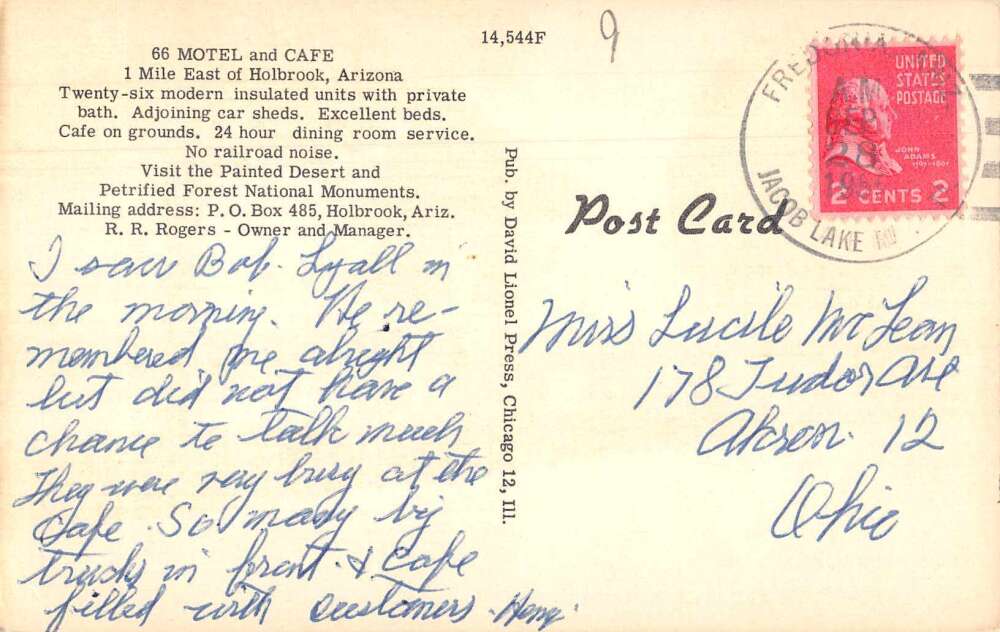 14,544F
9
66 MOTEL and CAFE
1 Mile East of Holbrook, Arizona
Twenty-six modern insulated units with private
bath. Adjoining car sheds. Excellent beds.
Cafe on grounds. 24 hour dining room service.
No railroad noise.
Visit the Painted Desert and
Petrified Forest National Monuments.
Mailing address: P. O. Box 485, Holbrook, Ariz.
R. R. Rogers - Owner and Manager.
I saw Bob Lyall in
the morning. He re-
membered me alright
but did not have a
chance to talk much
They were very busy at the
Cafe. So many big
trucks in front & Cafe
filled with customers.
Pub. by David Lionel Press, Chicago 12, Ill.
Post Card
JACOB LAKE
AM
SEP
28
UNITED
STATES
POSTAGE
JOHN
ADAMS
2 CENTS 2
Miss Lucile McLean
178 Tudor Ave
Akron 12
Ohio